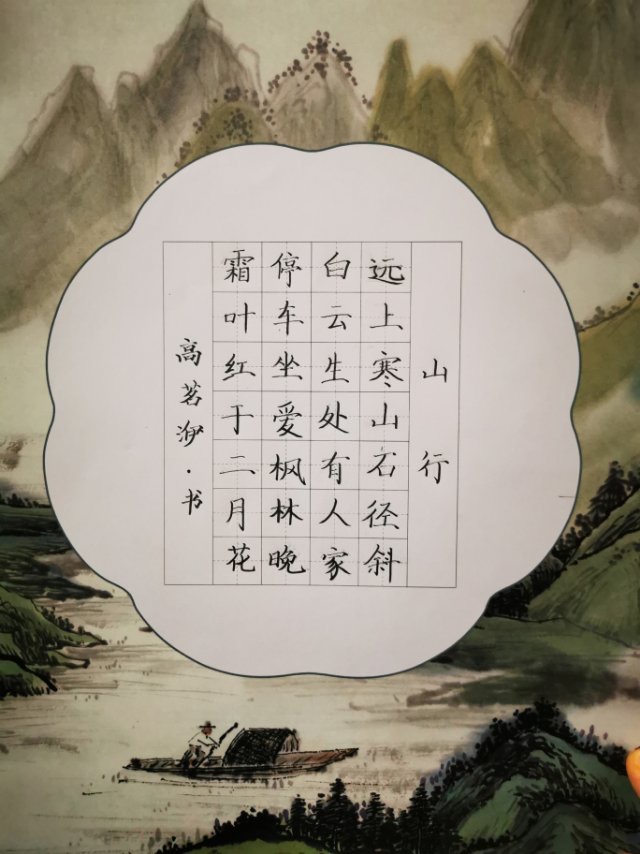 山行
远上寒山石径斜
白云生处有人家
停车坐爱枫林晚
霜叶红于二月花
高茗·书